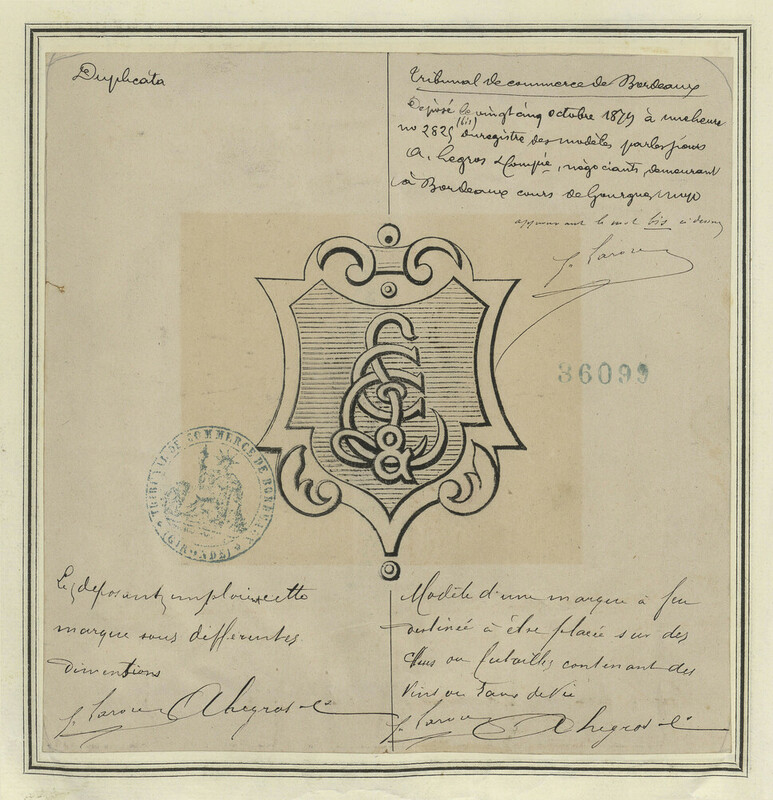 Duplicata
Tribunal de commerce de Bordeaux
Déposé le vingt cinq octobre 1879 à une heure
no 2825 (bis) du registre des modèles par les sieurs
A. Legros & Compie, négociants, demeurant
à Bordeaux cours de Gourgue,
approuvant le mot bis ci dessus
36099
TRIBUNAL DE COMMERCE DE BORDEAUX
(GIRONDE)
Les déposants emploient cette
marque sous différentes
dimentions
A Legros & Cie
Modèle d'une marque à feu
destinée à être placée sur des
ou futailles contenant des
Vins ou Eaux de Vie
A Legros & Cie